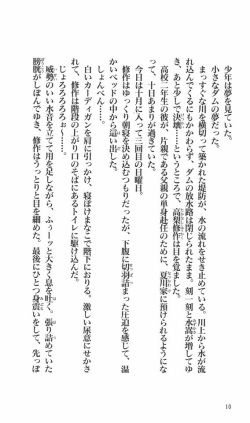 少年は夢を見ていた。
小さなダムの夢だった。
まっすぐな川を横切って築かれた堤防が、水の流れをせき止めている。川上から水が流
れ込んでくるにもかかわらず、ダムの放水路は閉じられたまま。刻一刻と水嵩が増してゆ
き、あと少しで決壊……というところで、高梨修作は目を覚ました。
高校二年生の彼が、片親である父親の単身赴任のために、夏川家に預けられるようにな
って、十日あまりが過ぎていた。
今日は十月に入って三回目の日曜日。
修作はゆっくり朝寝を決め込むつもりだったが、下腹に切羽詰まった圧迫を感じて、温
かいベッドの中から這いだした。
しょんべん……。
白いカーディガンを肩に引っかけ、寝ぼけまなこで階下におりる。激しい尿意にせかさ
れて、修作は階段の上がり口のそばにあるトイレに駆け込んだ。
じょろろろろろぉ〜……。
威勢のいい水音を立てて用を足しながら、ふぅーッと大きく息を吐く。張り詰めていた
膀胱がしぼんでゆき、修作はうっとりと目を細めた。最後にひとつ身震いをして、先っぽ
10